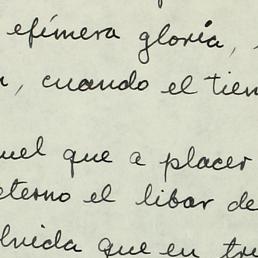 efímera gloria,
, cuando el tien
uel que a placer
eterno el libar de
lvida que en tr